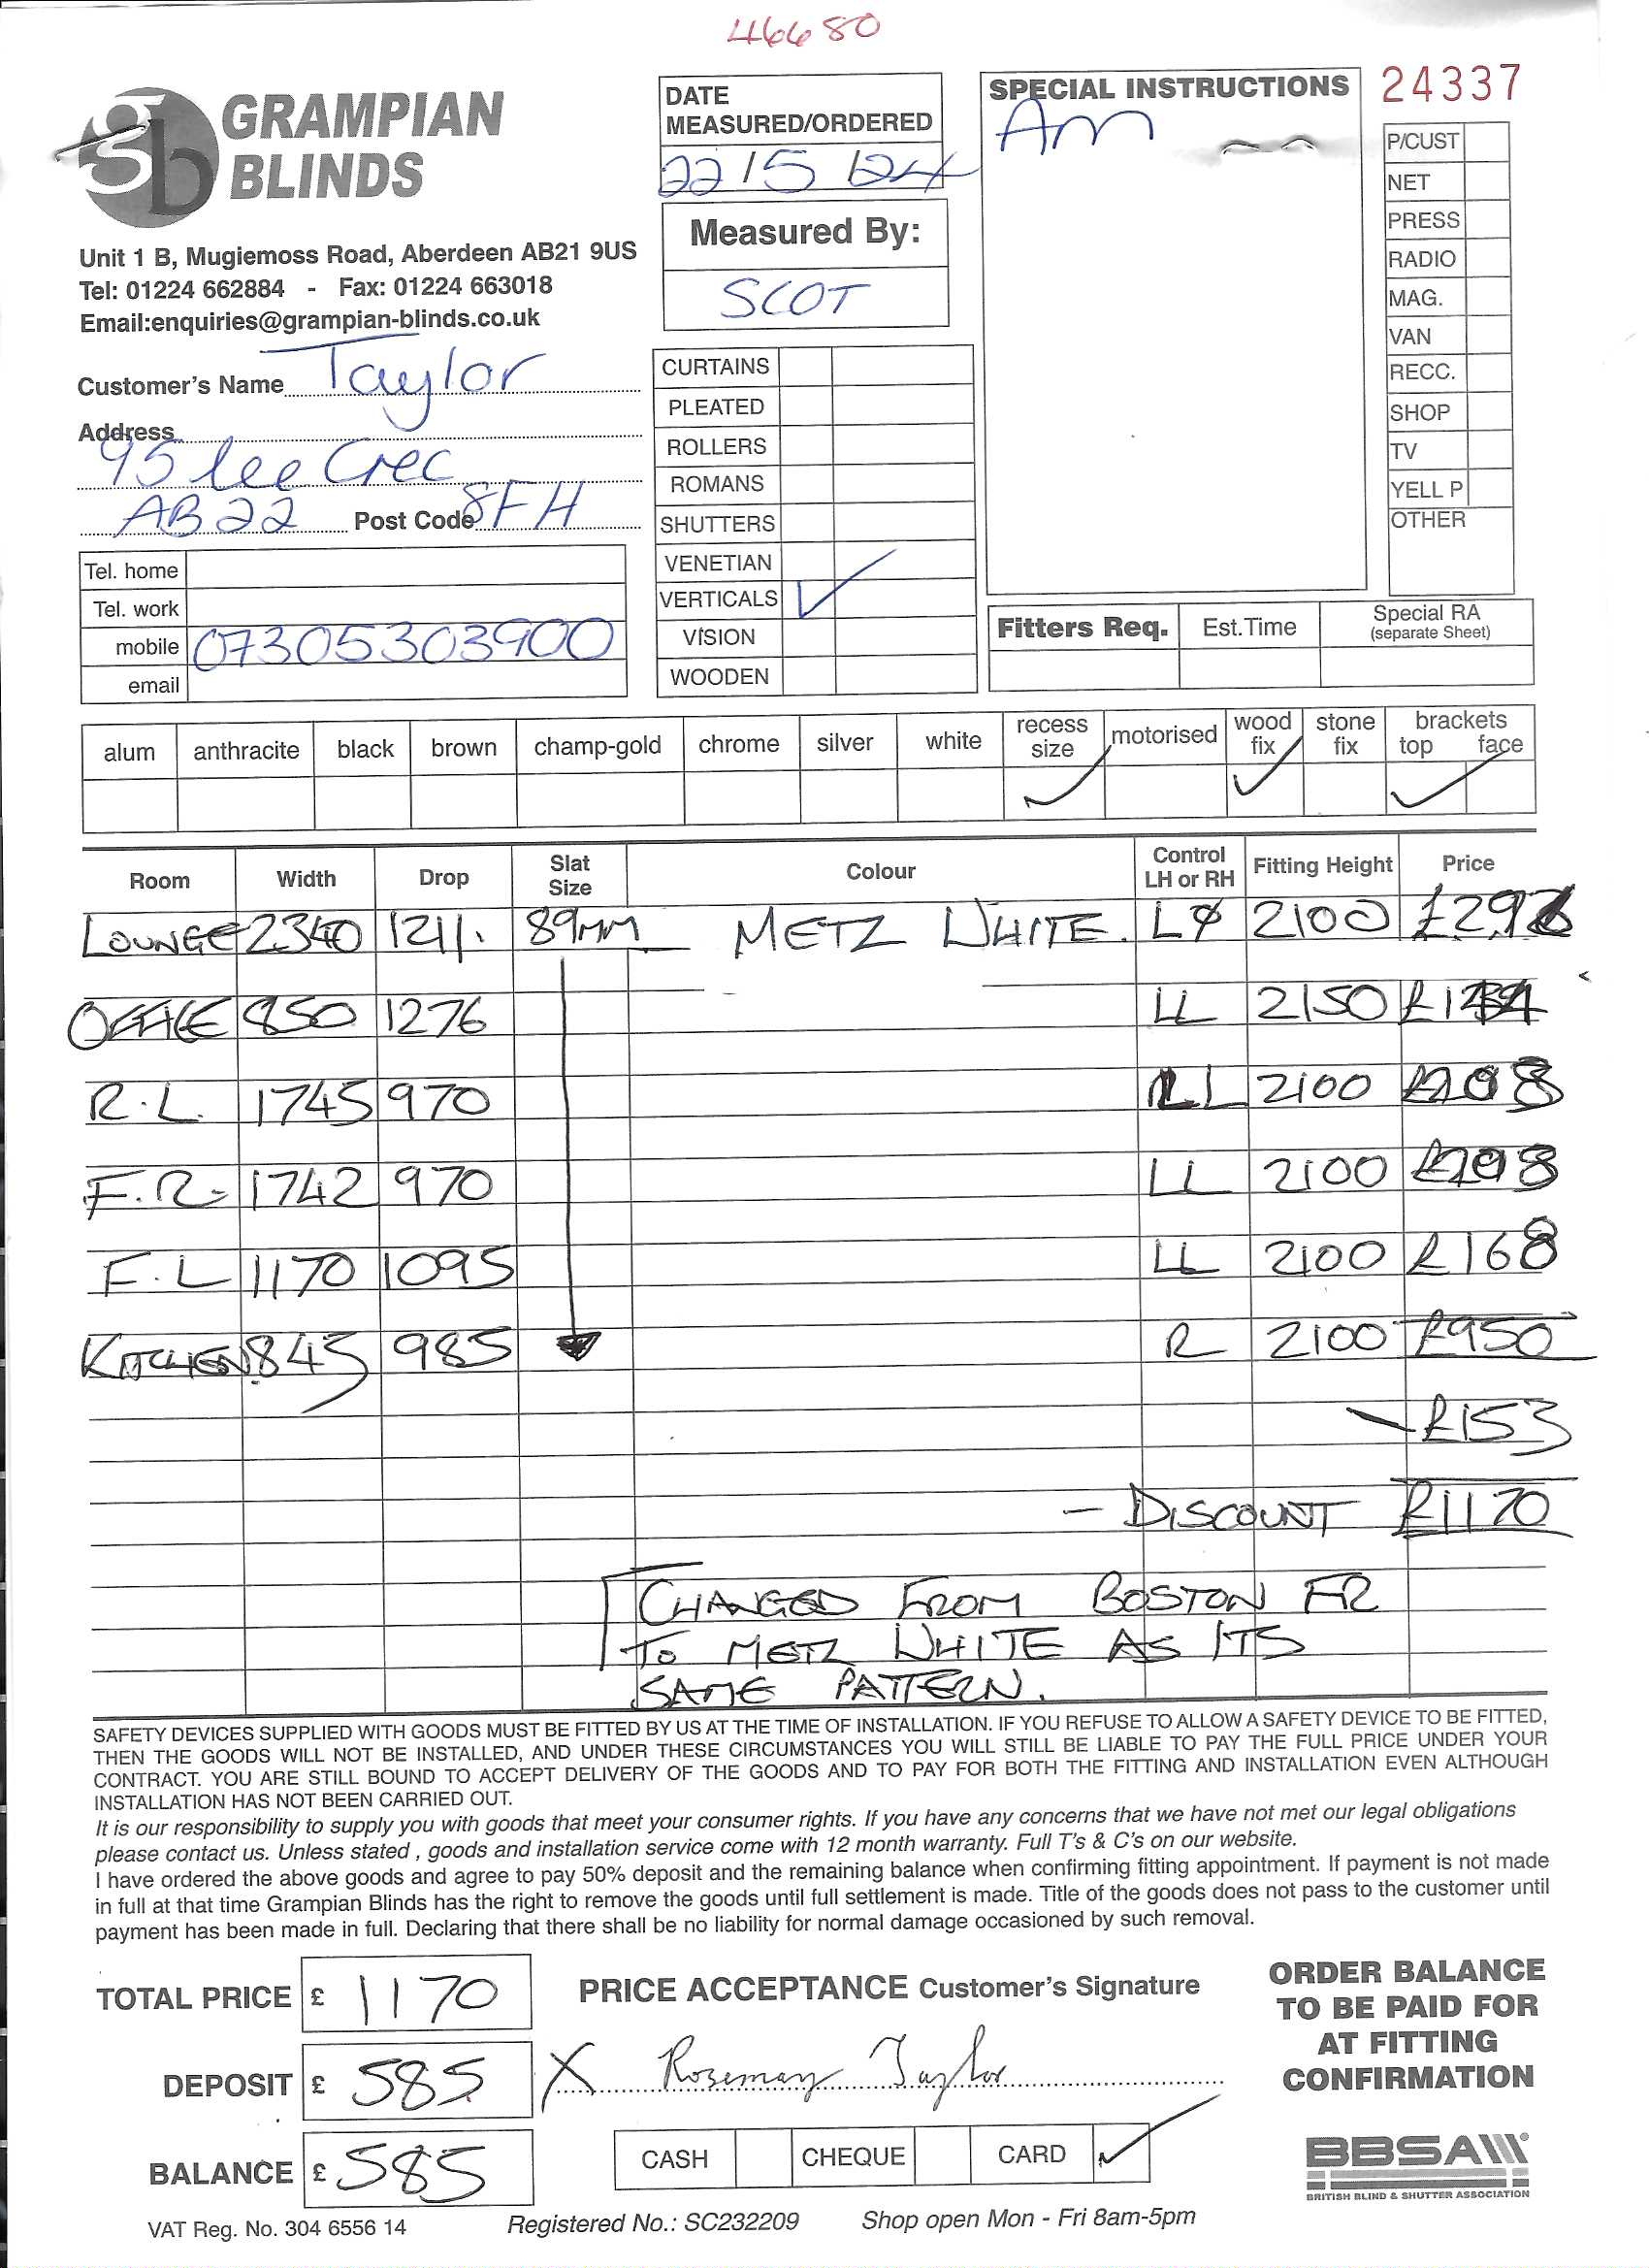 46680
GRAMPIAN
BLINDS
Unit 1 B, Mugiemoss Road, Aberdeen AB21 9US
Tel: 01224 662884 - Fax: 01224 663018
Email:enquiries@grampian-blinds.co.uk
DATE
MEASURED/ORDERED
22/5/24
Measured By:
SCOT
SPECIAL INSTRUCTIONS
Am
24337
P/CUST
NET
PRESS
RADIO
MAG.
VAN
RECC.
SHOP
TV
YELL P
OTHER
Customer's Name Taylor
Address
95 lee Crec
AB22 Post Code 8FH
Tel. home
Tel. work
mobile 07305303900
email
CURTAINS
PLEATED
ROLLERS
ROMANS
SHUTTERS
VENETIAN
VERTICALS ✓
VISION
WOODEN
Fitters Req. Est.Time Special RA
(separate Sheet)
alum anthracite black brown champ-gold chrome silver white recess size motorised wood fix stone fix brackets top face
✓ ✓ ✓
Room Width Drop Slat Size Colour Control LH or RH Fitting Height Price
LOUNGE 2340 1211. 89MM METZ WHITE. L 2100
OFFICE 850 1276 LL 2150
R.L. 1745 970 LL 2100
F.R. 1742 970 LL 2100
F.L 1170 1095 LL 2100 £168
KITCHEN 845 985 R 2100 £950
- £153
- DISCOUNT £1170
CHANGED FROM BOSTON FR
TO METZ WHITE AS ITS
SAME PATTERN.
SAFETY DEVICES SUPPLIED WITH GOODS MUST BE FITTED BY US AT THE TIME OF INSTALLATION. IF YOU REFUSE TO ALLOW A SAFETY DEVICE TO BE FITTED,
THEN THE GOODS WILL NOT BE INSTALLED, AND UNDER THESE CIRCUMSTANCES YOU WILL STILL BE LIABLE TO PAY THE FULL PRICE UNDER YOUR
CONTRACT. YOU ARE STILL BOUND TO ACCEPT DELIVERY OF THE GOODS AND TO PAY FOR BOTH THE FITTING AND INSTALLATION EVEN ALTHOUGH
INSTALLATION HAS NOT BEEN CARRIED OUT.
It is our responsibility to supply you with goods that meet your consumer rights. If you have any concerns that we have not met our legal obligations
please contact us. Unless stated , goods and installation service come with 12 month warranty. Full T's & C's on our website.
I have ordered the above goods and agree to pay 50% deposit and the remaining balance when confirming fitting appointment. If payment is not made
in full at that time Grampian Blinds has the right to remove the goods until full settlement is made. Title of the goods does not pass to the customer until
payment has been made in full. Declaring that there shall be no liability for normal damage occasioned by such removal.
TOTAL PRICE £ 1170
DEPOSIT £ 585
BALANCE £ 585
PRICE ACCEPTANCE Customer's Signature
X Rosemary Taylor
CASH CHEQUE CARD ✓
ORDER BALANCE
TO BE PAID FOR
AT FITTING
CONFIRMATION
BBSA
BRITISH BLIND & SHUTTER ASSOCIATION
VAT Reg. No. 304 6556 14 Registered No.: SC232209 Shop open Mon - Fri 8am-5pm